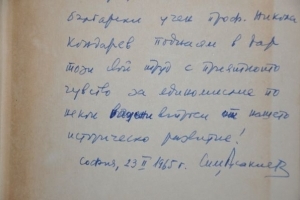 български учен проф. Никола
Кондарев поднасям в дар
този мой труд с приятното
чувство за единомислие по
някои важни въпроси от нашето
историческо развитие!
София, 23 II 1965 г.